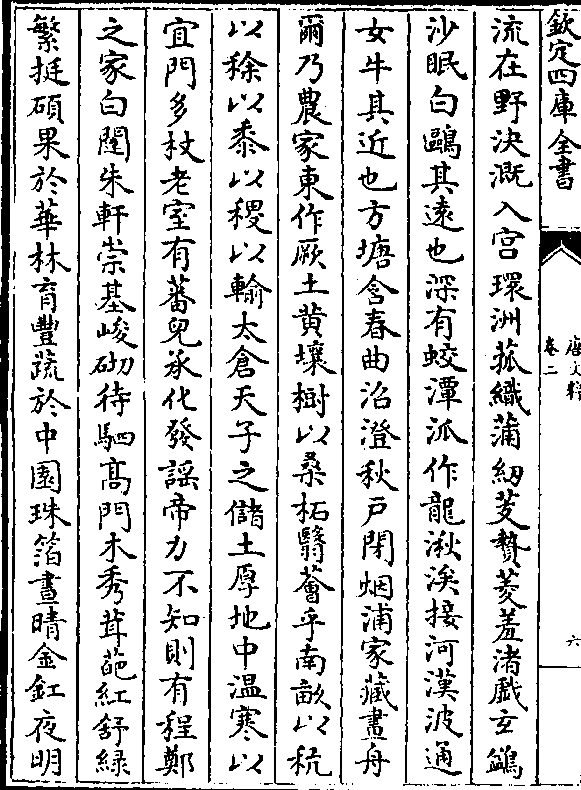 欽定四庫全書
唐文粹
卷二
六
流在野決漑入宮環洲菰織蒲紉芰贄菱羞渚戲玄鷁
沙眠白鷗其遠也深有蛟潭派作龍湫涘接河漢波通
女牛其近也方塘含春曲沼澄秋戸閉烟浦家藏畫舟
爾乃農家東作厥土黃壤樹以桑柘翳薈乎南畝以秔
以稌以黍以稷以輸太倉天子之儲土厚地中温寒以
宜門多杖老室有蕃兒承化發謡帝力不知則有程鄭
之家白閮朱軒崇基峻砌待駟髙門木秀茸葩紅舒緑
繁挺碩果於華林育豐蔬於中園珠箔晝晴金釭夜明